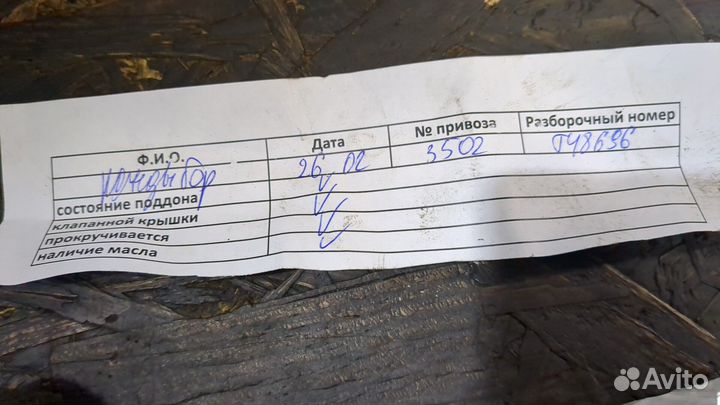 Ф.И.О. Дата № привоза Разборочный номер
26 02 3502 Т48696
состояние поддона
клапанной крышки
прокручивается
наличие масла
Avito